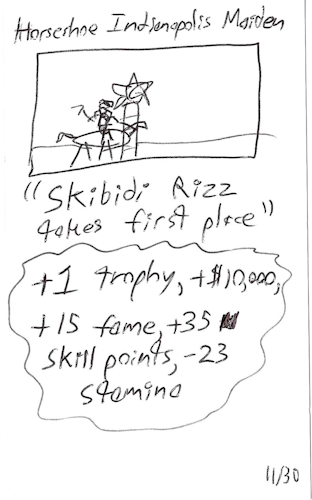 Horseshoe Indianapolis Maiden
"Skibidi Rizz
takes first place"
+1 trophy, +$10,000,
+15 fame, +35
skill points, -23
stamina
11/30